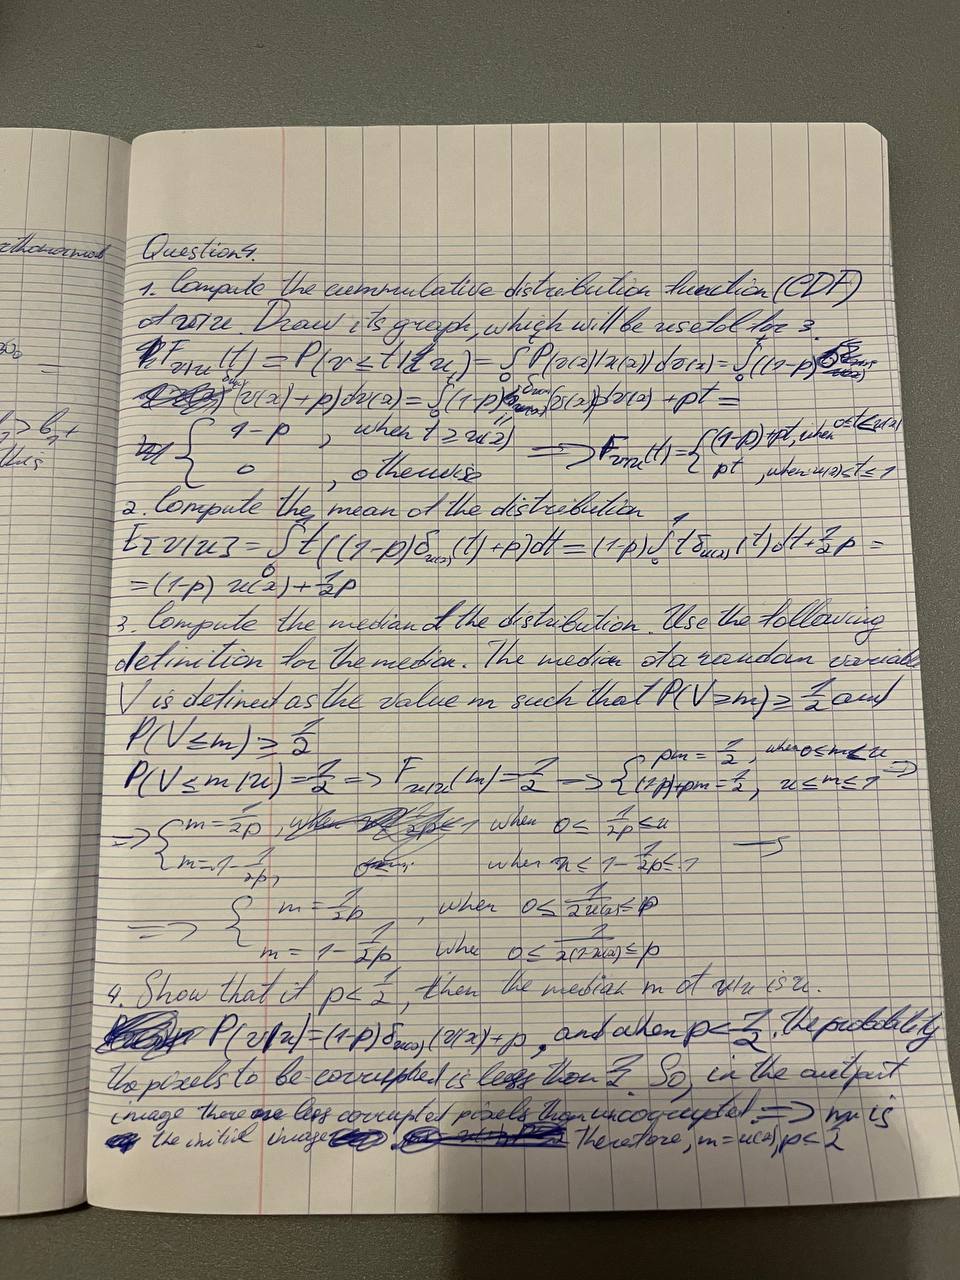 Question 4.
1. Compute the cummulative distribution function (CDF)
of v|u. Draw its graph, which will be useful for 3.
F_{v|u}(t) = P(v ≤ t | u) = ∫_0^t P(v(x)|u(x)) dv(x) = ∫_0^t ((1-p) δ_{u(x)}
(v(x) + p) dv(x) = ∫_0^t (1-p) δ_{u(x)} (v(x)) dv(x) + pt =
{ 1-p , when t ≥ u(x) ⟹ F_{v|u}(t) = { (1-p)+pt, when 0≤t≤u(x)
0 , otherwise pt , when u(x)≤t≤1
2. Compute the mean of the distribution
E[v|u] = ∫_0^1 t((1-p)δ_{u(x)}(t)+p)dt = (1-p) ∫_0^1 t δ_{u(x)}(t)dt + 1/2 p =
= (1-p) u(x) + 1/2 p
3. Compute the median of the distribution. Use the following
definition for the median. The median of a random variable
V is defined as the value m such that P(V ≥ m) ≥ 1/2 and
P(V ≤ m) ≥ 1/2
P(V ≤ m | u) = 1/2 ⟹ F_{v|u}(m) = 1/2 ⟹ { pm = 1/2, when 0≤m≤u
(1-p)+pm = 1/2, u ≤ m ≤ 1 ⟹
⟹ { m = 1/2p , when 0 ≤ 1/2p ≤ u
m = 1 - 1/2p, when u ≤ 1 - 1/2p ≤ 1 ⟹
⟹ { m = 1/2p , when 0 ≤ 1/2u(x) ≤ p
m = 1 - 1/2p whe 0 ≤ 1/2(1-u(x)) ≤ p
4. Show that if p < 1/2, then the median m of v|u is u.
P(v|u) = (1-p) δ_{u(x)} (v(x)+p , and when p < 1/2, the probability
the pixels to be corrupted is less than 1/2. So, in the output
image there are less corrupted pixels than uncorrupted ⟹ m is
the initial image Therefore, m = u(x), p < 1/2